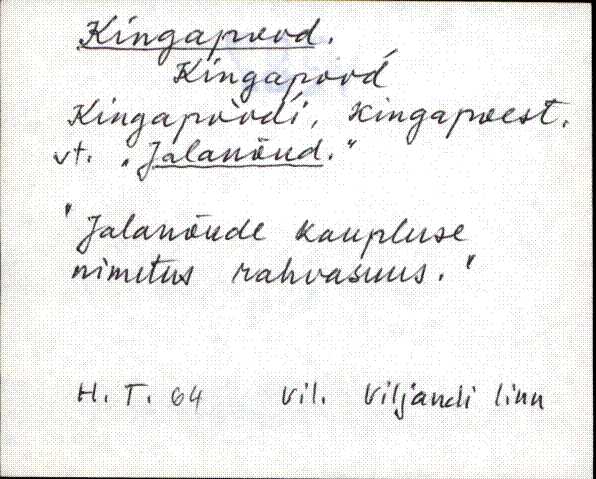 Kingapood.
Kingapood
Kingapoodi, kingapoest.
vt. „Jalanõud."
"Jalanõude kaupluse
nimetus rahvasuus."
H. T. 64 Vil. Viljandi linn